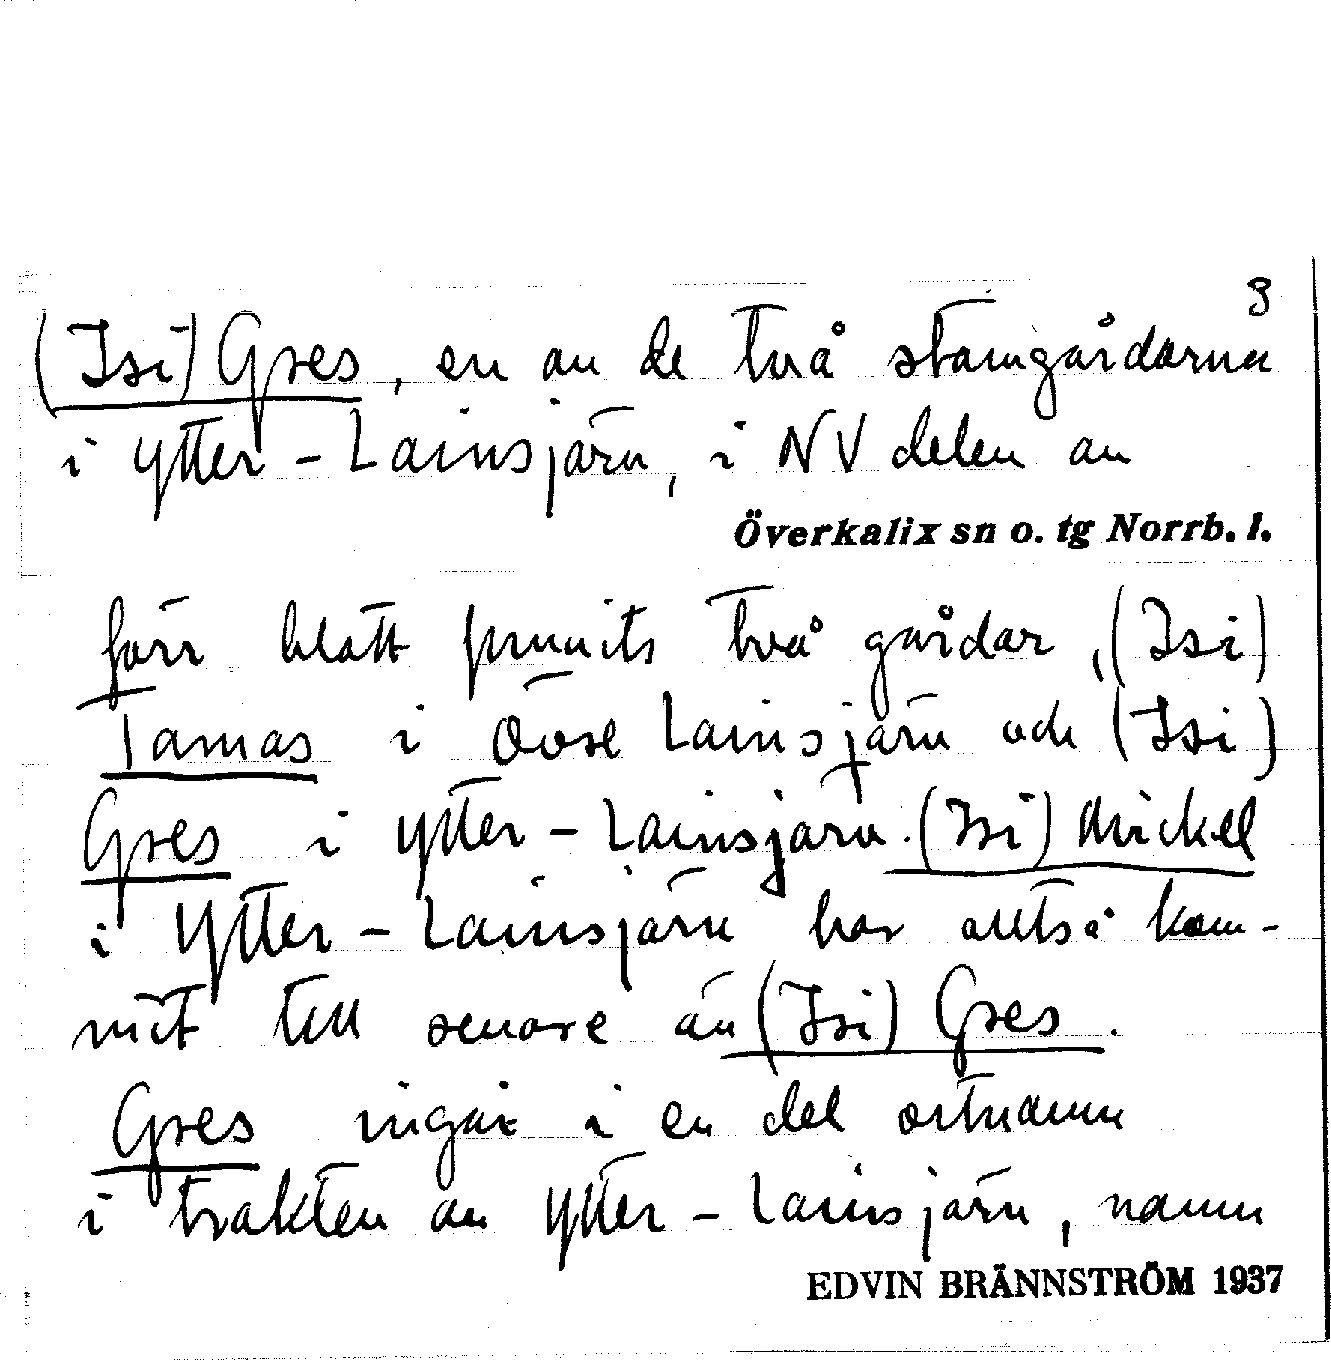 3
(Isi) Gres, en av de två stamgårdarna
i Ytter-Lainsjärv, i NV delen av
Överkalix sn o. tg Norrb. l.
förr blott funnits två gårdar, (Isi)
Tomas i Övre Lainsjärv och (Isi)
Gres i Ytter-Lainsjärv. (Isi) Mickel
i Ytter-Lainsjärv har alltså kom-
mit till senare än (Isi) Gres.
Gres ingår i en del ortnamn
i trakten av Ytter-Lainsjärv, namn
EDVIN BRÄNNSTRÖM 1937